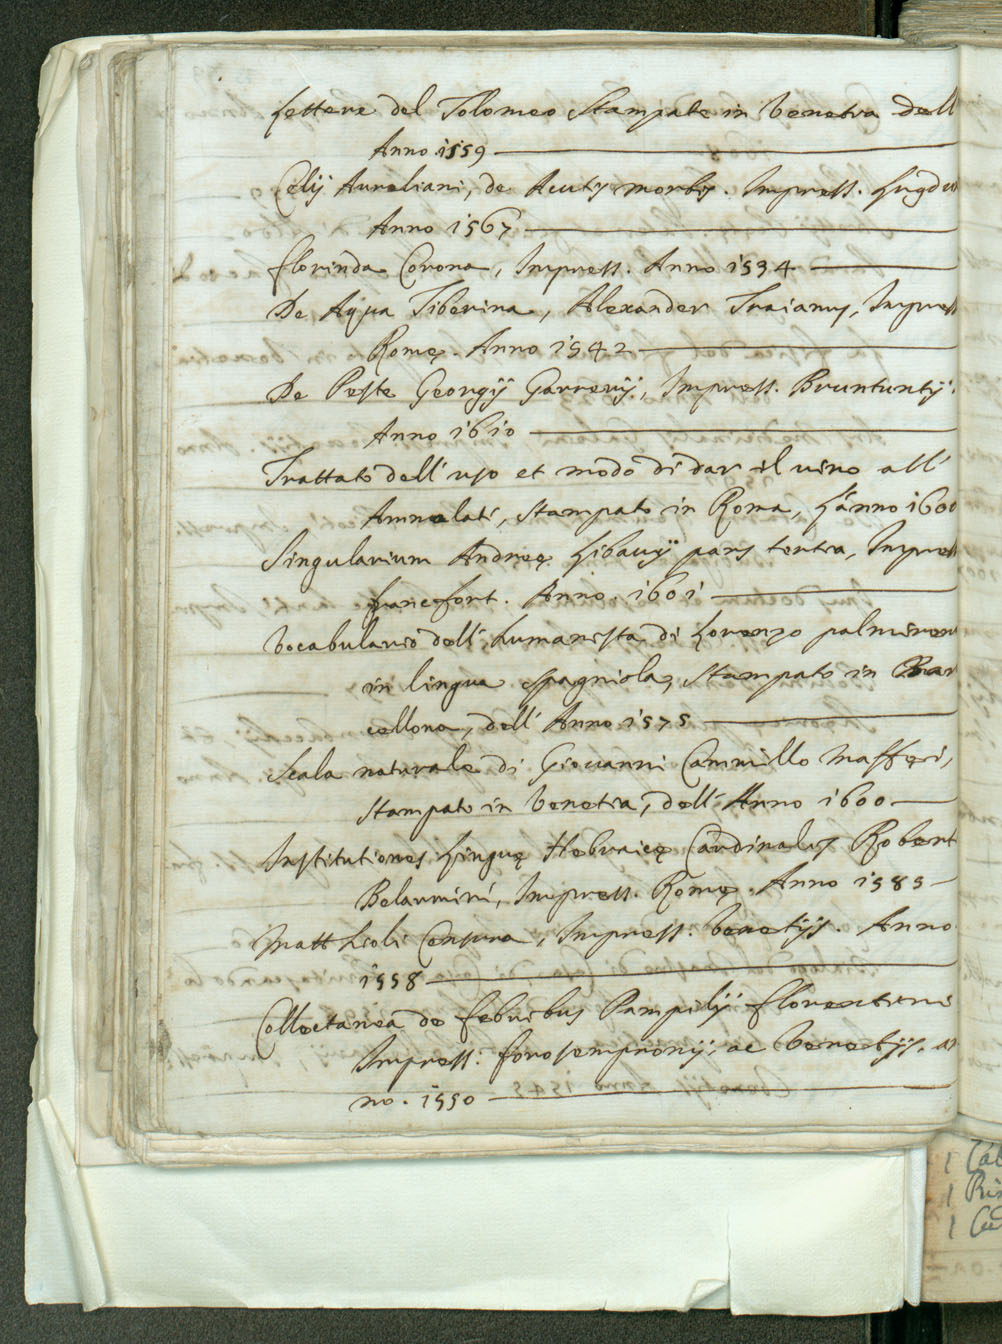 Lettere del Tolomeo Stampate in Venetia dell
Anno 1559
Celij Aureliani, de Acutis morbis. Impress. Lugdu
Anno 1567
florinda Corona, Impress. Anno 1534
De Aqua Tiberina, Alexander Traianus, Impress
Romę. Anno 1542
De Peste Georgij Garnerij, Impress. Bruntuntij.
Anno 1610
Trattato dell' uso et modo di dar il vino all'
Ammalati, stampato in Roma, l'anno 1600
Singularium Andreę Libavij pars tertia, Impress
francfort. Anno. 1601
Vocabulario dell' humanista di Lorenzo palmiren
in lingua spagniola, stampato in Bar
cellona, dell' Anno 1575
Scala naturale di Giovanni Cammillo Maffęi,
stampato in Venetia, dell' Anno 1600
Institutiones Linguę Hebraicę Cardinalis Robert
Belarmini, Impress. Romę. Anno 1585
Matthioli Censura, Impress. Venetijs. Anno
1558
Collectanea de febribus Pampilij florentini
Impress: forosempronij, ac Venetijs. an
no. 1550
1
1
1